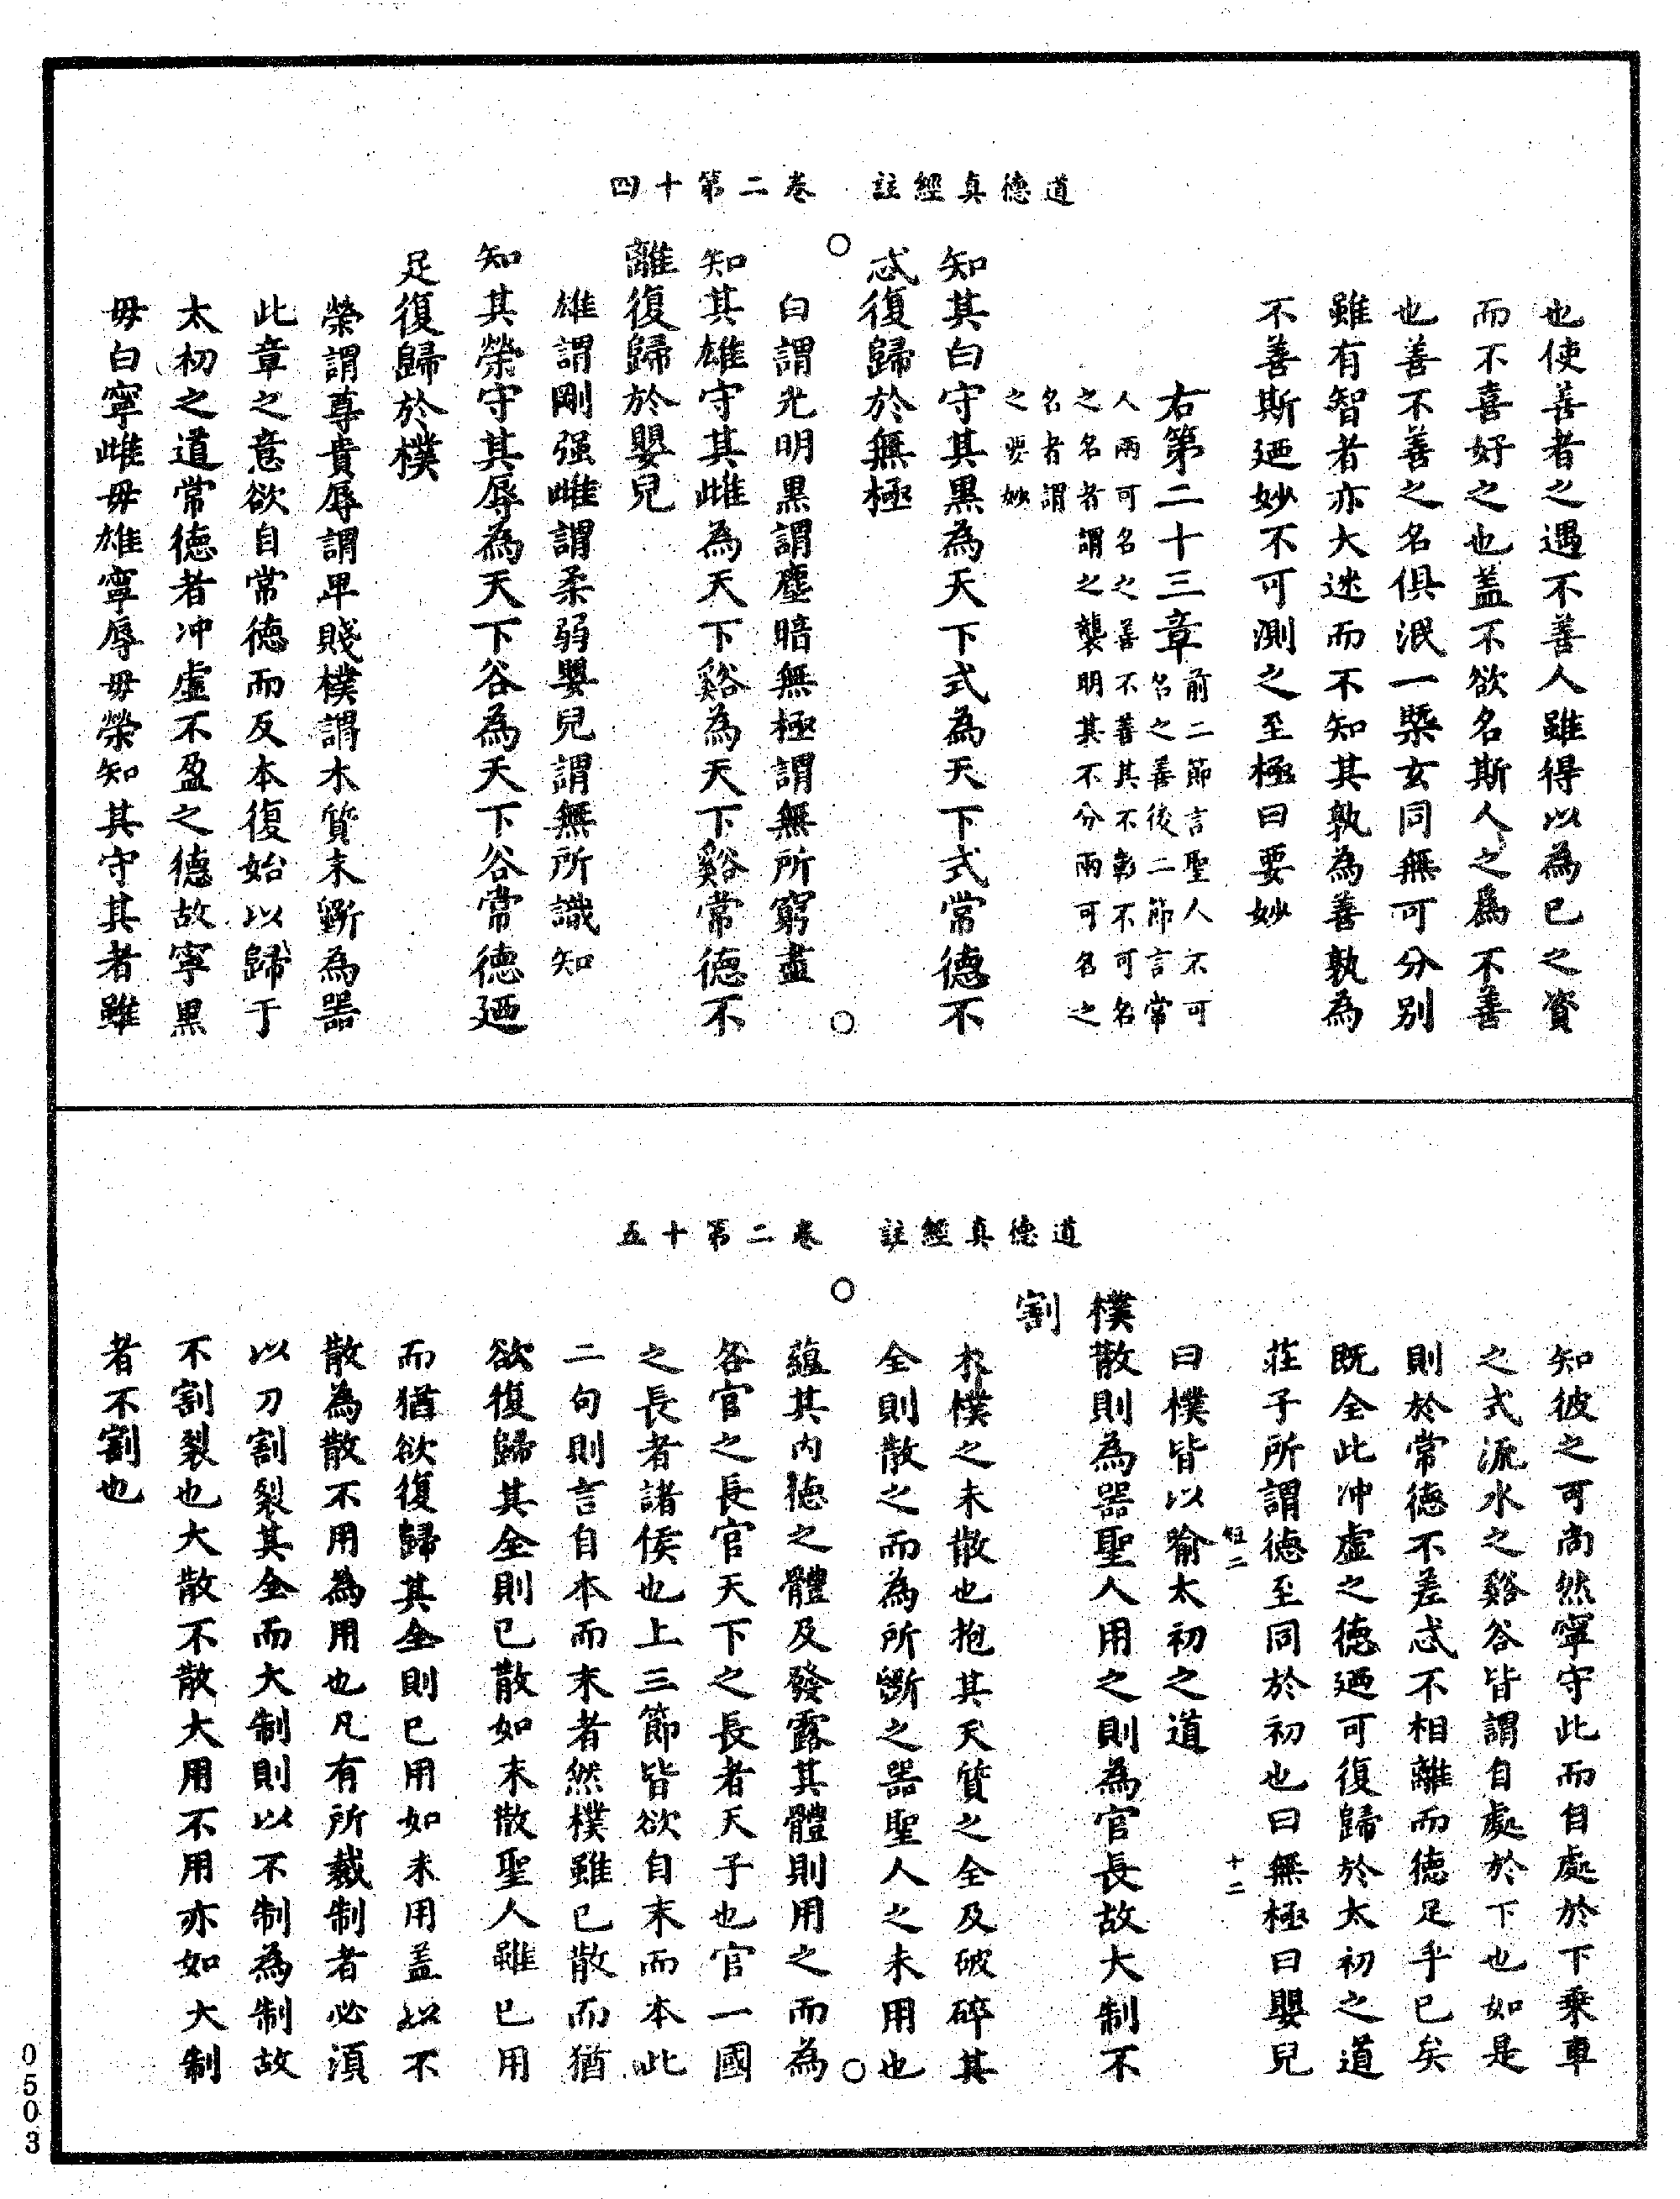 道德真經註　卷二第十四
也使善者之遇不善人雖得以為己之資
而不喜好之也盖不欲名斯人之爲不善
也善不善之名俱泯一槩玄同無可分别
雖有智者亦大迷而不知其孰為善孰為
不善斯廼妙不可測之至極曰要妙
右第二十三章
前二節言聖人不可
名之善後二節言常
人兩可名之善不善其不彰不可名
之名者謂之襲明其不分兩可名之
名者謂
之要妙
知其白守其黑為天下式為天下式常德不
忒復歸於無極
白謂光明黑謂塵暗無極謂無所窮盡
知其雄守其雌為天下谿為天下谿常德不
離復歸於嬰兒
雄謂剛强雌謂柔弱嬰兒謂無所識知
知其榮守其辱為天下谷為天下谷常德廼
足復歸於樸
榮謂尊貴辱謂卑賤樸謂木質未斲為器
此章之意欲自常德而反本復始以歸于
太初之道常德者冲虛不盈之德故寧黑
毋白寧雌毋雄寧辱毋榮知其守其者雖
道德真經註　卷二第十五
知彼之可尚然寧守此而自處於下乘車
之式流水之谿谷皆謂自處於下也如是
則於常德不差忒不相離而德足乎已矣
既全此冲虛之德廼可復歸於太初之道
莊子所謂德至同於初也曰無極曰嬰兒
短二　十二
曰樸皆以喻太初之道
樸散則為器聖人用之則為官長故大制不
割
木樸之未散也抱其天質之全及破碎其
全則散之而為所斲之器聖人之未用也
蘊其内德之體及發露其體則用之而為
各官之長官天下之長者天子也官一國
之長者諸侯也上三節皆欲自末而本此
二句則言自本而末者然樸雖已散而猶
欲復歸其全則已散如未散聖人雖已用
而猶欲復歸其全則已用如未用盖以不
散為散不用為用也凡有所裁制者必湏
以刀割裂其全而大制則以不制為制故
不割裂也大散不散大用不用亦如大制
者不割也
0503